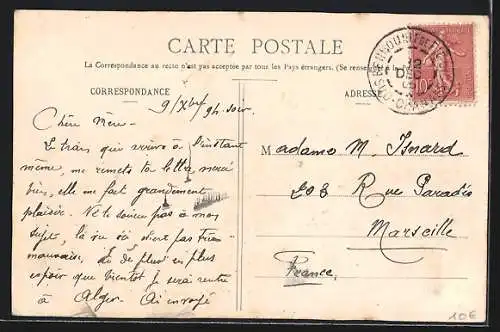 CARTE POSTALE
La Correspondance au recto n'est pas acceptée par tous les Pays étrangers. (Se renseigner à la
CORRESPONDANCE
ADRESSE
9/Xbre/ 9h. soir.
Chère Mère
Le train qui arrive à l'instant
même, me remets ta lettre merci
bien, elle me fait grandement
plaisir. Ne te soucie pas à mon
sujet, la vie ici n'est pas trop
mauvaise, et de plus en plus
espoir que bientôt je serai rentré
à Alger. Ai envoyé
Madame M. Isnard
208 Rue Paradis
Marseille
France
DEC
10
10€